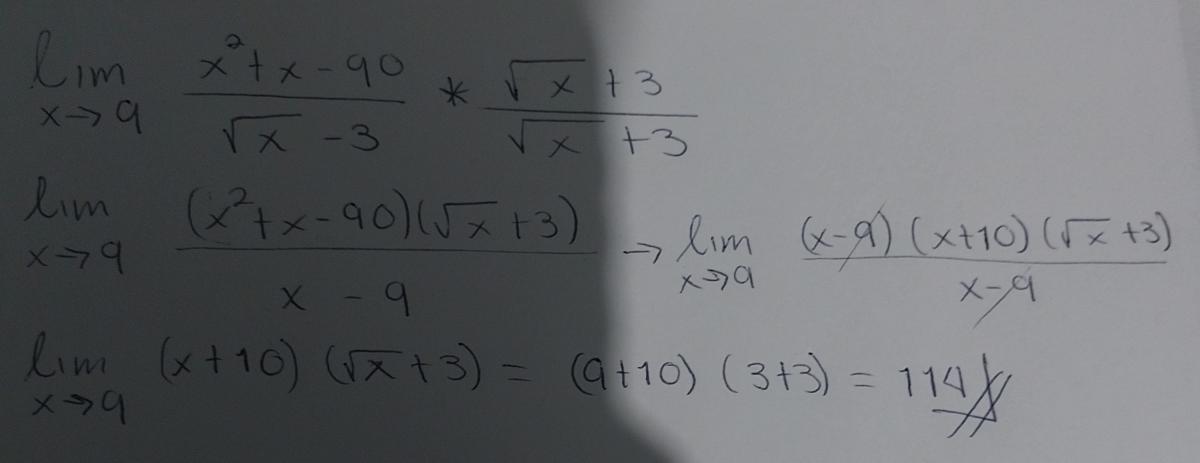 lim x→9 (x²+x-90)/(√x -3) * (√x +3)/(√x +3)
lim x→9 ((x²+x-90)(√x+3))/(x - 9) → lim x→9 ((x-9)(x+10)(√x+3))/(x-9)
lim x→9 (x+10)(√x+3) = (9+10)(3+3) = 114